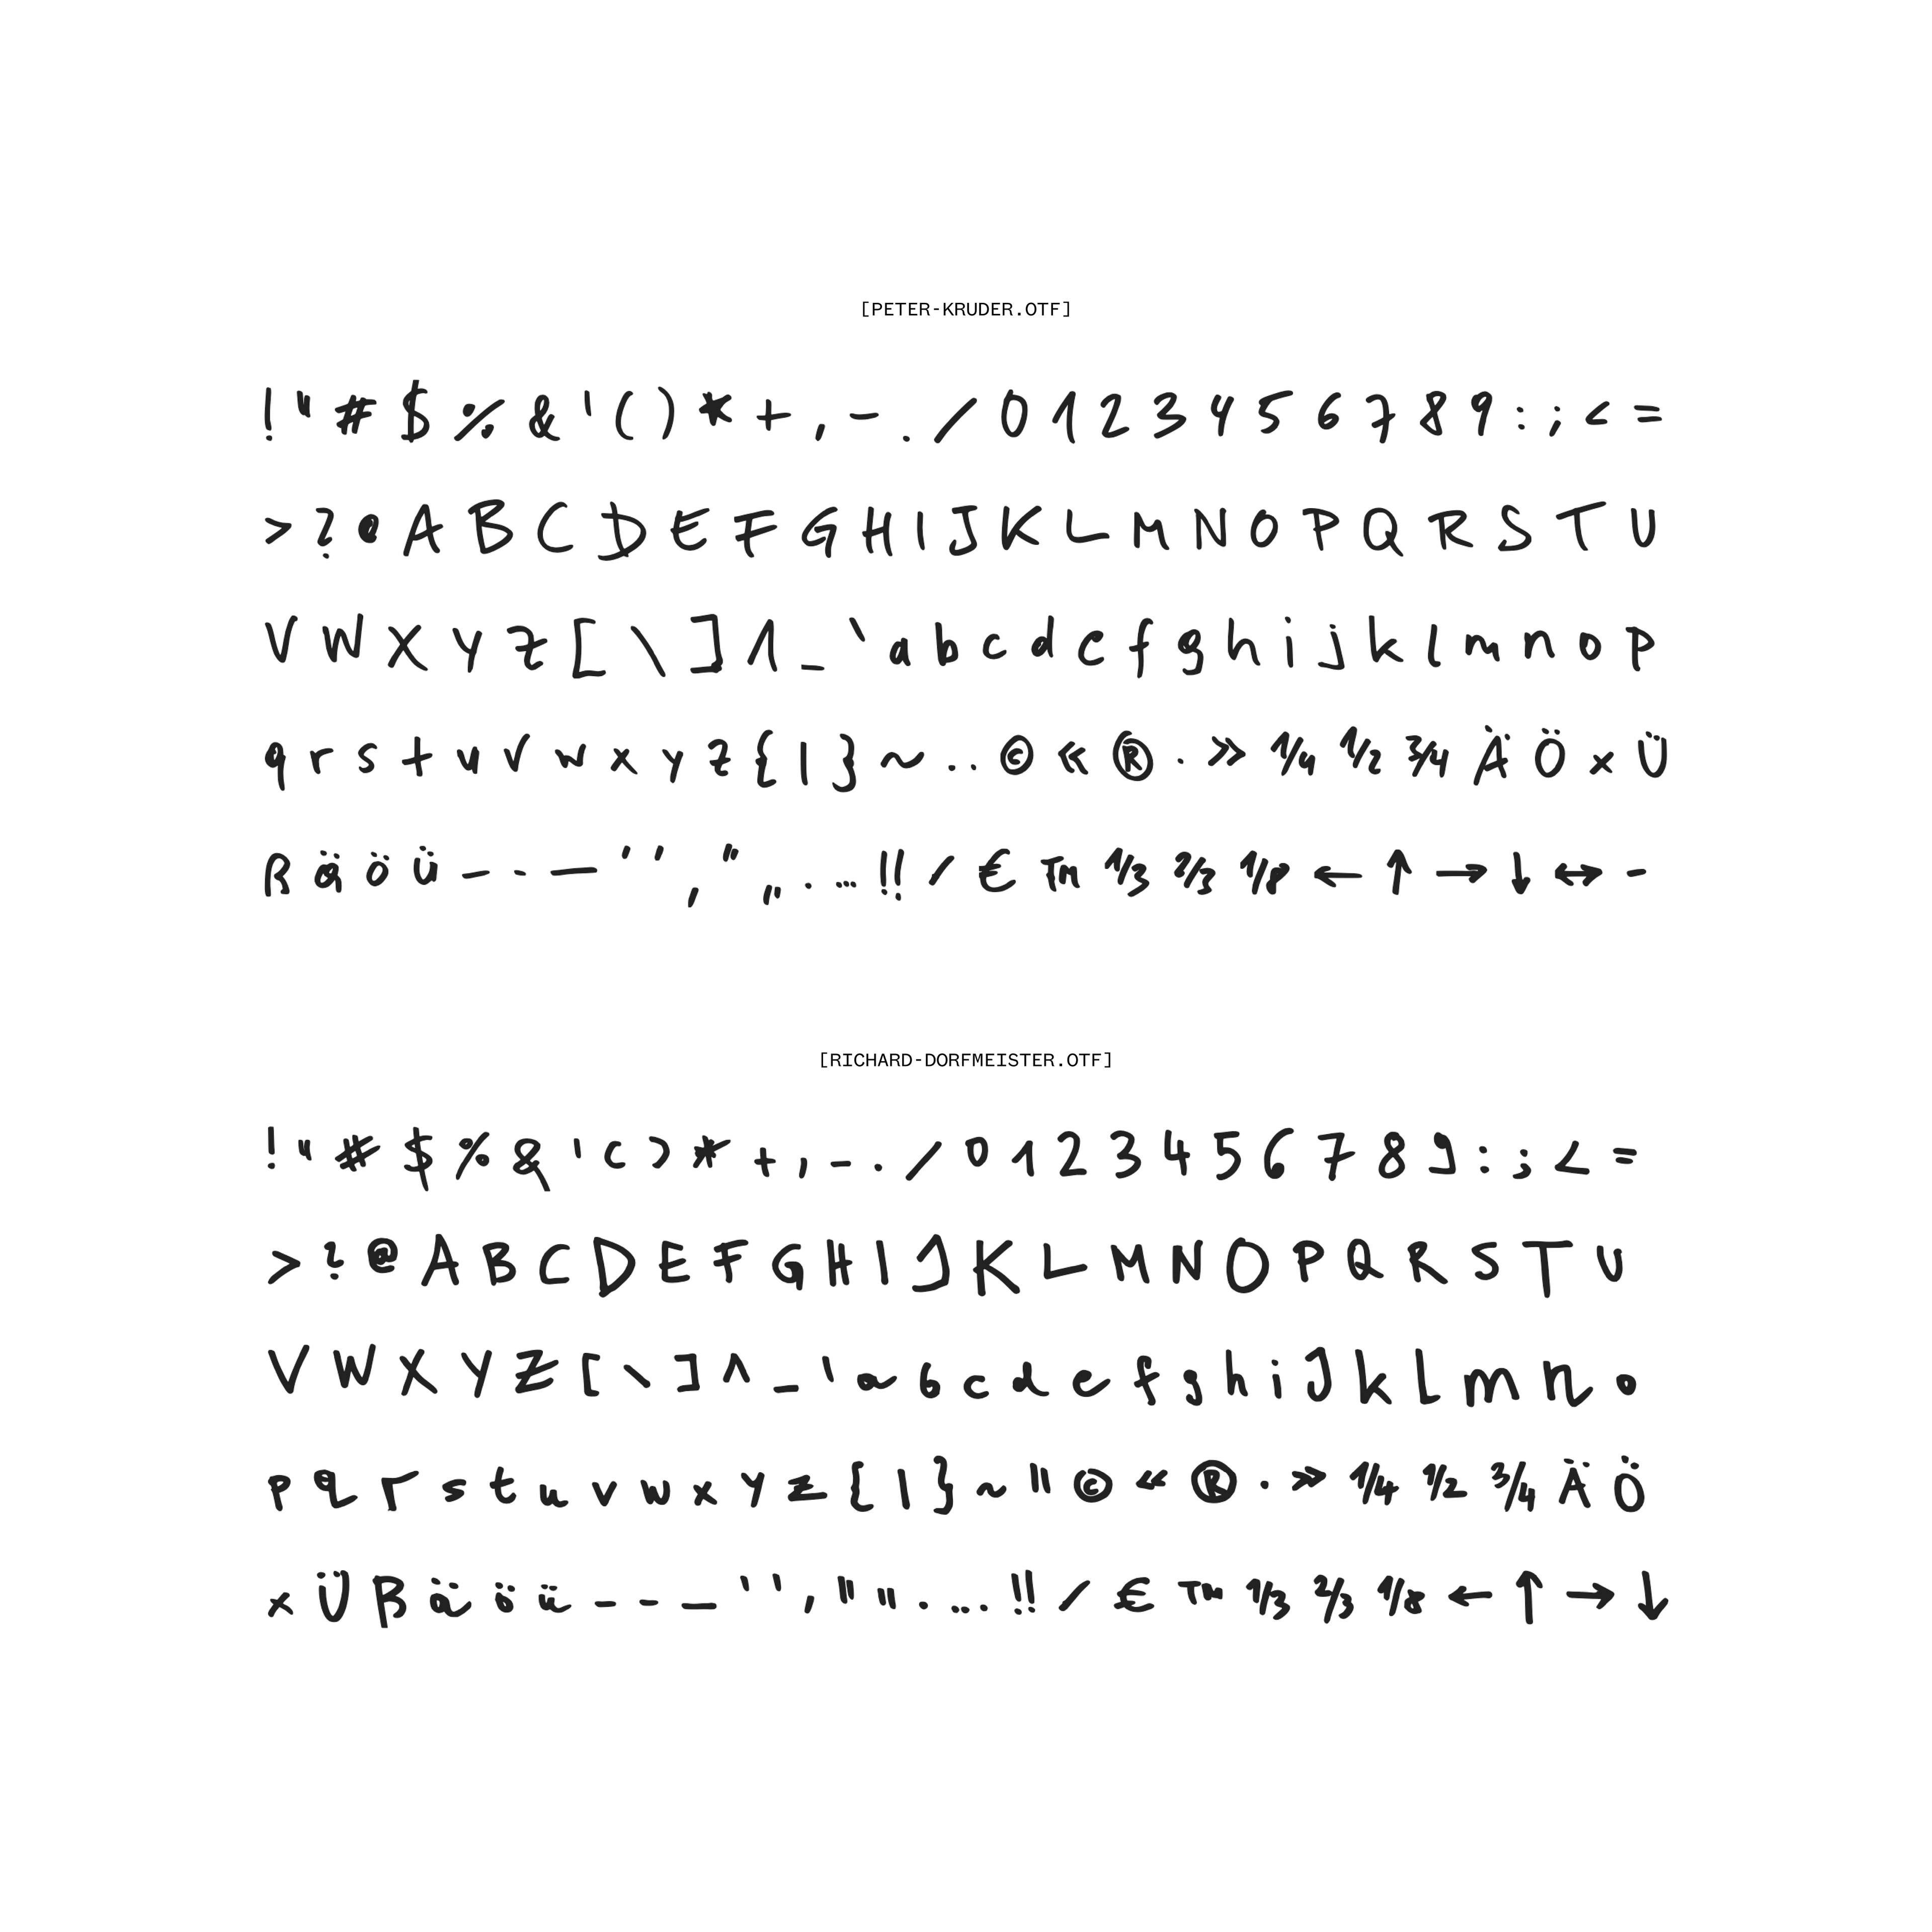 [PETER-KRUDER.OTF]
! " # $ % & ' ( ) * + , - . / 0 1 2 3 4 5 6 7 8 9 : ; < =
> ? @ A B C D E F G H I J K L M N O P Q R S T U
V W X Y Z [ \ ] ^ _ ` a b c d e f g h i j k l m n o p
q r s t u v w x y z { | } ~ ¨ © « ® · » ¼ ½ ¾ Ä Ö × Ü
ß ä ö ü – - — ‘ ’ ‚ “ „ • … ‼ ⁄ € ™ ⅓ ⅔ ⅛ ← ↑ → ↓ ↔ -
[RICHARD-DORFMEISTER.OTF]
! " # $ % & ' ( ) * + , - . / 0 1 2 3 4 5 6 7 8 9 : ; < =
> ? @ A B C D E F G H I J K L M N O P Q R S T U
V W X Y Z [ \ ] ^ _ ` a b c d e f g h i j k l m n o
p q r s t u v w x y z { | } ~ " © « ® · » ¼ ½ ¾ Ä Ö
× Ü ß ä ö ü – - — ‘ ’ ‚ “ „ • … ‼ ⁄ € ™ ⅓ ⅔ ⅛ ← ↑ → ↓